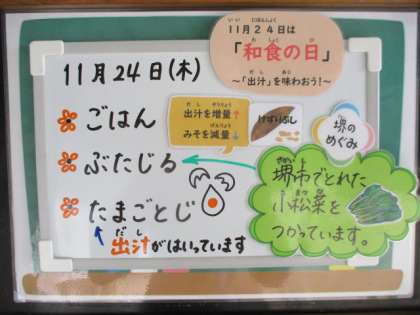 11月24日は
「和食の日」
～「出汁」を味わおう!～
11月24日(木)
ごはん
ぶたじる
たまごとじ
出汁がはいっています
出汁を増量↑
みそを減量↓
けずりぶし
堺の
めぐみ
堺市でとれた
小松菜を
つかっています。